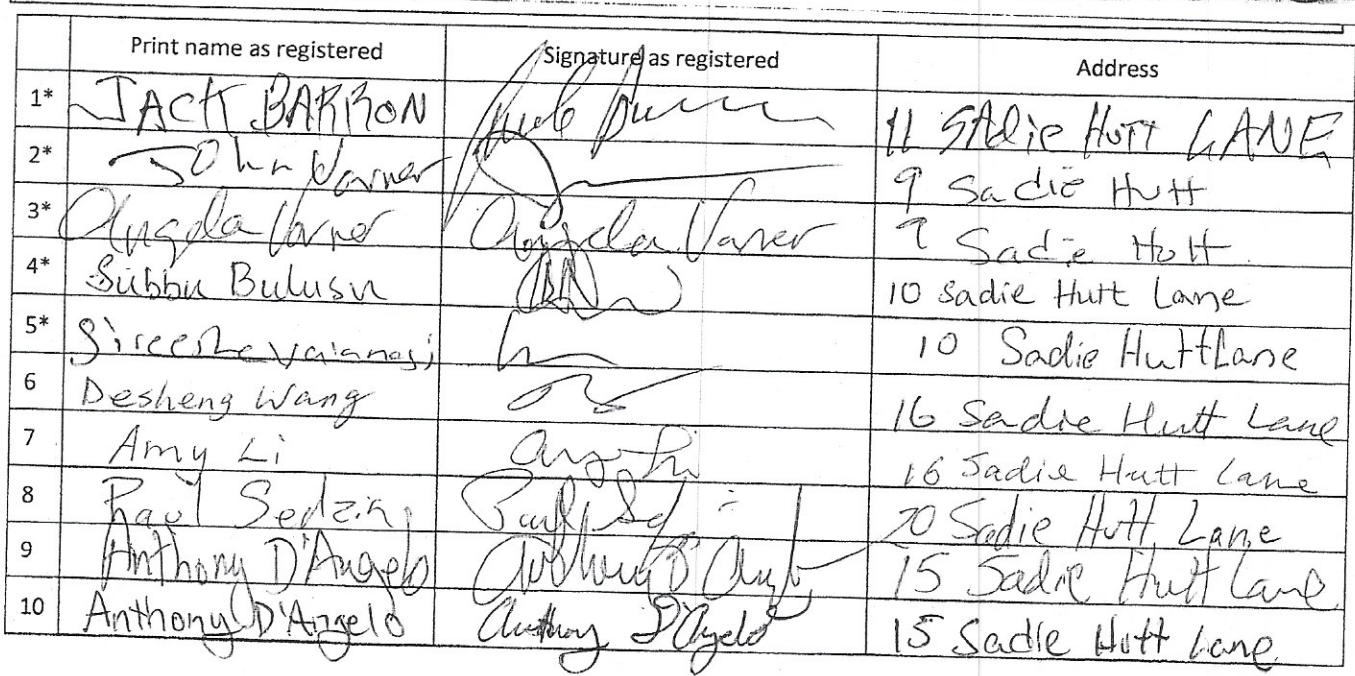 Print name as registered Signature as registered Address
1* JACK BARRON 11 SAdie HuTT LANE
2* John Varner 9 Sadie Hutt
3* Angela Varner Angela Varner 9 Sadie Hutt
4* Subbu Bulusu 10 Sadie Hutt Lane
5* 10 Sadie Hutt Lane
6 Desheng Wang 16 Sadie Hutt Lane
7 Amy Li Amy Li 16 Sadie Hutt Lane
8 Paul 20 Sadie Hutt Lane
9 Anthony D'Angelo Anthony D'Angelo 15 Sadie Hutt Lane
10 Anthony D'Angelo Anthony D'Angelo 15 Sadie Hutt Lane